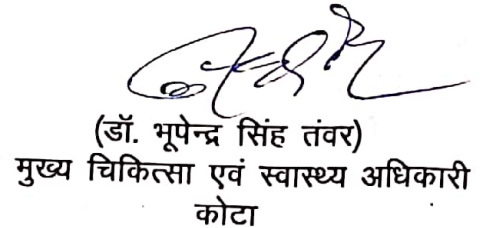 (डॉ. भूपेन्द्र सिंह तंवर)
मुख्य चिकित्सा एवं स्वास्थ्य अधिकारी
कोटा